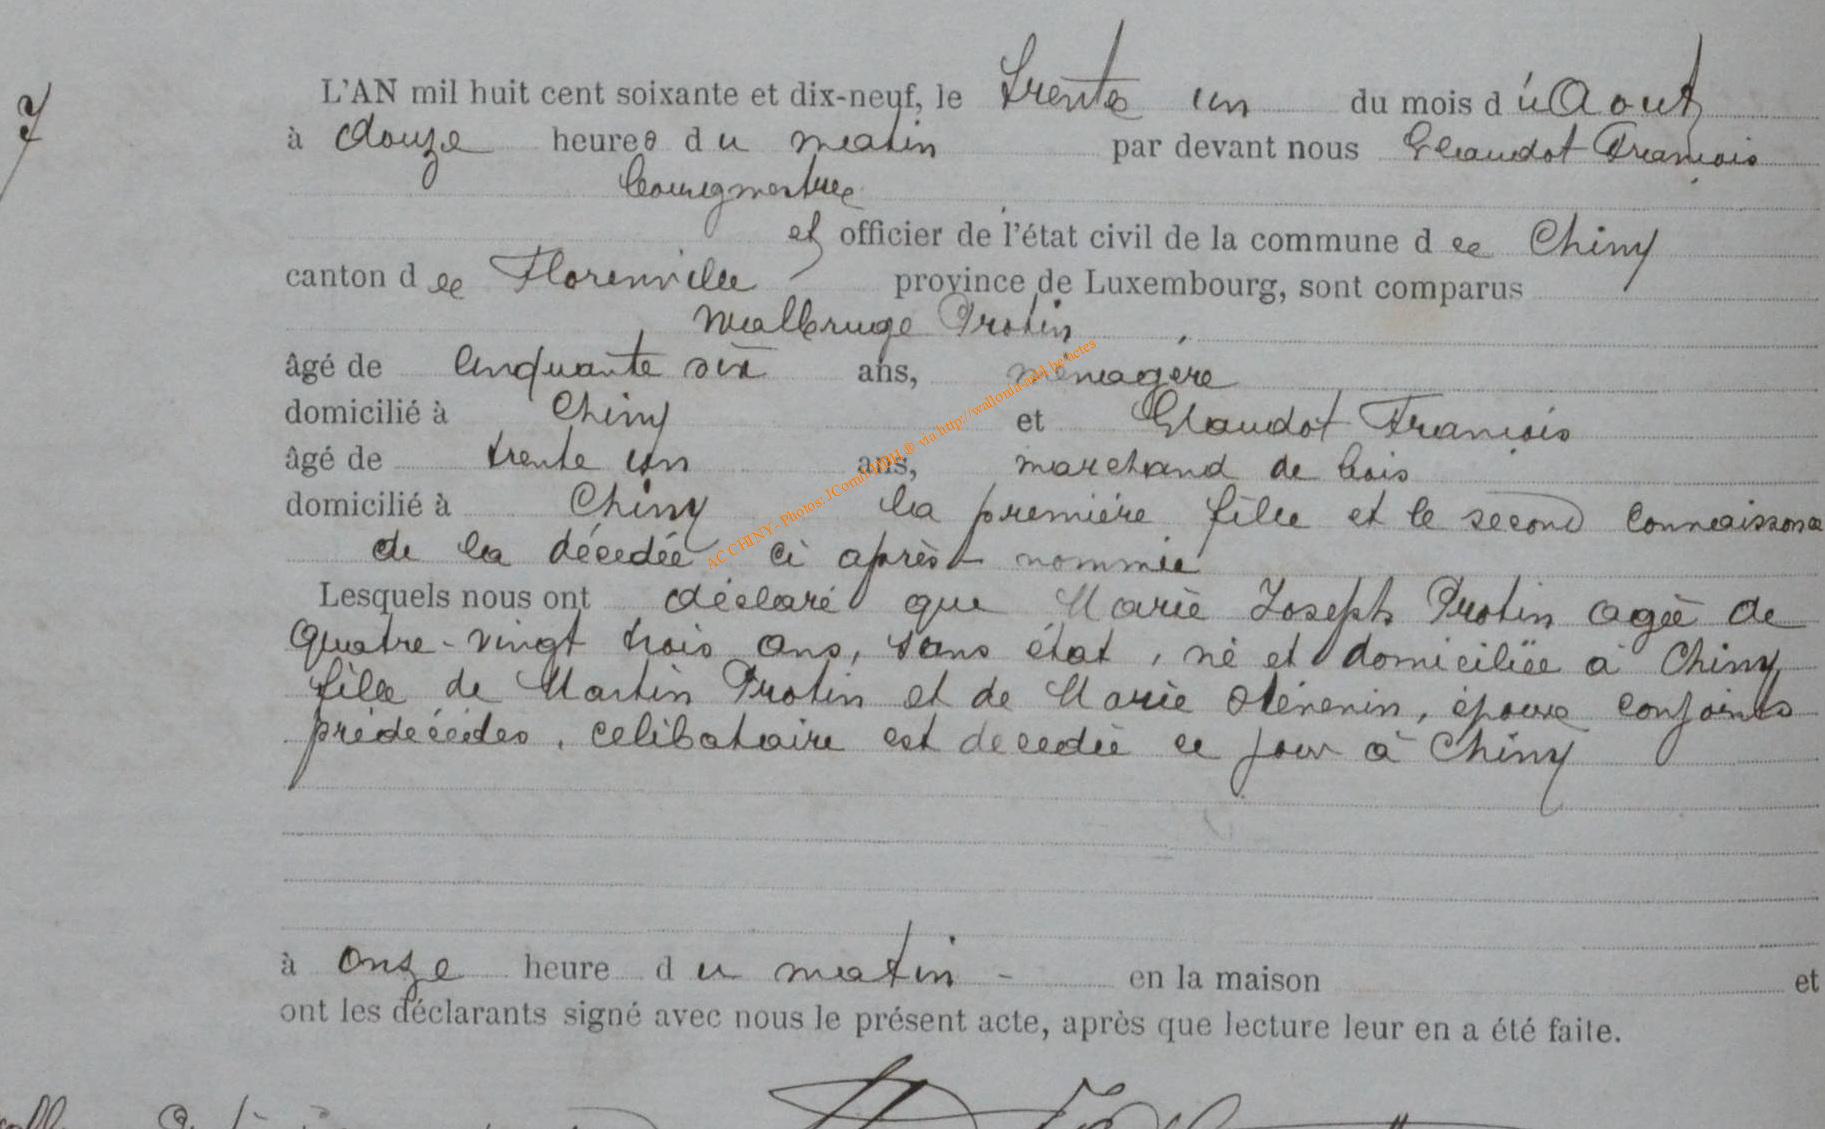 7
L'AN mil huit cent soixante et dix-neuf, le trente un du mois d u Aout
à douze heures d u matin par devant nous Glaudot François
bourgmestre
et officier de l'état civil de la commune d e Chiny
canton d e Florenville province de Luxembourg, sont comparus
Walbruge Protin
âgé de cinquante six ans, ménagère
domicilié à Chiny et Glaudot François
âgé de trente un ans, marchand de bois
domicilié à Chiny la première fille et le second connaissance
de la décedée ci après nommée
Lesquels nous ont déclaré que Marie Joseph Protin agée de
quatre-vingt trois ans, sans état, né et domiciliée à Chiny
fille de Martin Protin et de Marie, époux conjoints
prédécédés, celibataire est decedée ce jour à Chiny
à onze heure d u matin - en la maison et
ont les déclarants signé avec nous le présent acte, après que lecture leur en a été faite.